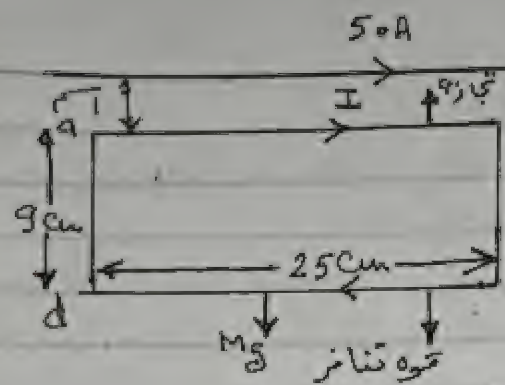 50A
I
تجاذب
1 سم
a
9 Cm
25 Cm
d
Mg
قوه تنافر